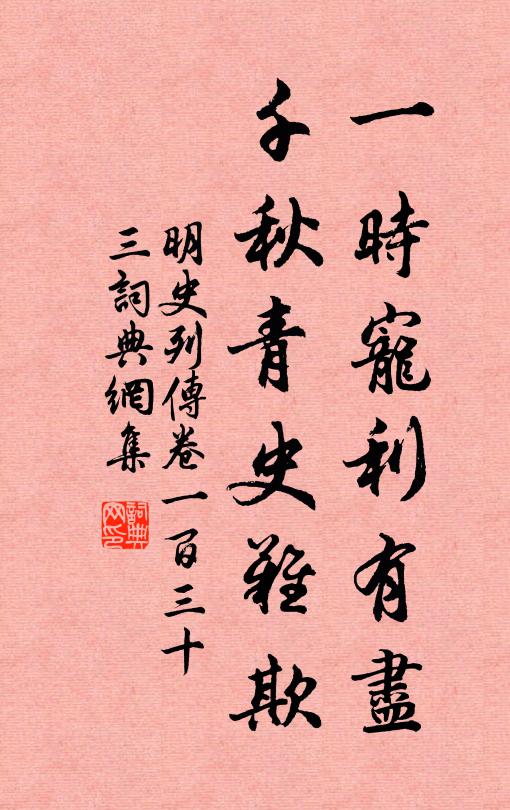 一時寵利有盡
千秋青史難欺
明史列傳卷一百三十
三詞典網集
詞典網印